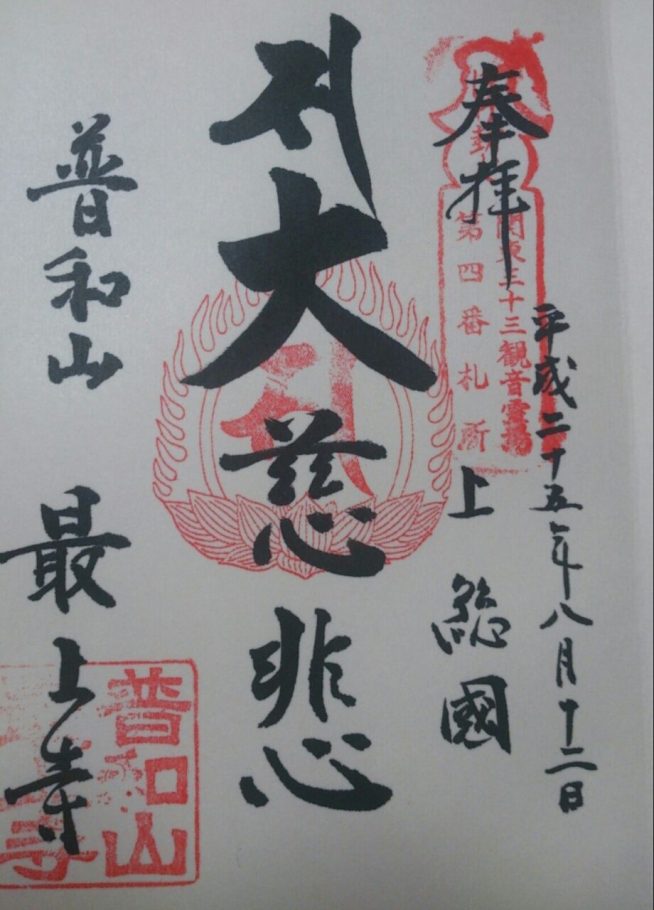 奉拝
平成二十五年八月十二日
関東三十三観音霊場
第四番札所
上総國
大慈悲
普和山 最上寺
普和山